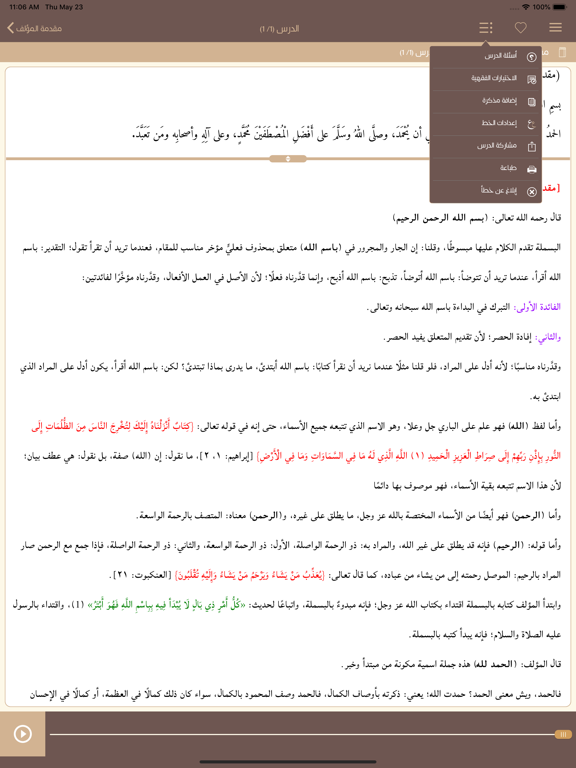 11:06 AM Thu May 23
100%
مقدمة المؤلف
الدرس (1/ 1)
أسئلة الدرس
الاختيارات الفقهية
إضافة مذكرة
إعدادات الخط
مشاركة الدرس
طباعة
إبلاغ عن خطأ
رس (1/ 1)
(مقد
بسمِ
الحمدُ ي أن يُحْمَدَ، وصلَّى اللهُ وسَلَّمَ على أَفْضَلِ الْمُصْطَفَيْنَ مُحَمَّدٍ، وعلى آلِهِ وأصحابِه ومَن تَعَبَّدَ.
[مقد
قال رحمه الله تعالى: (بسم الله الرحمن الرحيم)
البسملة تقدم الكلام عليها مبسوطًا، وقلنا: إن الجار والمجرور في (باسم الله) متعلق بمحذوف فعليٍّ مؤخر مناسب للمقام، فعندما تريد أن تقرأ تقول: التقدير: باسم
الله أقرأ، عندما تريد أن تتوضأ: باسم الله أتوضأ، تذبح: باسم الله أذبح، وإنما قدَّرناه فعلًا؛ لأن الأصل في العمل الأفعال، وقدَّرناه مؤخَّرًا لفائدتين:
الفائدة الأولى: التبرك في البداءة باسم الله سبحانه وتعالى.
والثاني: إفادة الحصر؛ لأن تقديم المتعلق يفيد الحصر.
وقدَّرناه مناسبًا؛ لأنه أدل على المراد، فلو قلنا مثلًا عندما نريد أن نقرأ كتابًا: باسم الله أبتدئ، ما يدرى بماذا تبتدئ؟ لكن: باسم الله أقرأ، يكون أدل على المراد الذي
ابتدئ به.
وأما لفظ (الله) فهو علم على الباري جل وعلا، وهو الاسم الذي تتبعه جميع الأسماء، حتى إنه في قوله تعالى: {كِتَابٌ أَنْزَلْنَاهُ إِلَيْكَ لِتُخْرِجَ النَّاسَ مِنَ الظُّلُمَاتِ إِلَى
النُّورِ بِإِذْنِ رَبِّهِمْ إِلَى صِرَاطِ الْعَزِيزِ الْحَمِيدِ (١) اللَّهِ الَّذِي لَهُ مَا فِي السَّمَاوَاتِ وَمَا فِي الْأَرْضِ} [إبراهيم: ١، ٢]، ما نقول: إن (الله) صفة، بل نقول: هي عطف بيان؛
لأن هذا الاسم تتبعه بقية الأسماء، فهو موصوف بها دائمًا
وأما (الرحمن) فهو أيضًا من الأسماء المختصة بالله عز وجل، ما يطلق على غيره، و(الرحمن) معناه: المتصف بالرحمة الواسعة.
وأما قوله: (الرحيم) فإنه قد يطلق على غير الله، والمراد به: ذو الرحمة الواصلة، الأول: ذو الرحمة الواسعة، والثاني: ذو الرحمة الواصلة، فإذا جمع مع الرحمن صار
المراد بالرحيم: الموصل رحمته إلى من يشاء من عباده، كما قال تعالى: {يُعَذِّبُ مَنْ يَشَاءُ وَيَرْحَمُ مَنْ يَشَاءُ وَإِلَيْهِ تُقْلَبُونَ} [العنكبوت: ٢١].
وابتدأ المؤلف كتابه بالبسملة اقتداء بكتاب الله عز وجل؛ فإنه مبدوءٌ بالبسملة، واتباعًا لحديث: «كُلُّ أَمْرٍ ذِي بَالٍ لَا يُبْدَأُ فِيهِ بِبِاسْمِ اللَّهِ فَهُوَ أَبْتَرُ» (1)، واقتداء بالرسول
عليه الصلاة والسلام؛ فإنه يبدأ كتبه بالبسملة.
قال المؤلف: (الحمد لله) هذه جملة اسمية مكونة من مبتدأ وخبر.
فالحمد، ويش معنى الحمد؟ حمدت الله؛ يعني: ذكرته بأوصاف الكمال، فالحمد وصف المحمود بالكمال، سواء كان ذلك كمالًا في العظمة، أو كمالًا في الإحسان